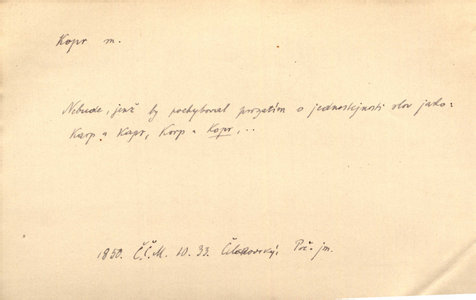 Kopr m.
Nebude, jenž by pochyboval prozatím o jednostejnosti slov jako:
Karp a Kapr, Korp a Kopr, ..
1850. Č.Č.M. 10. 33. Čelakovský: Poč. jm.